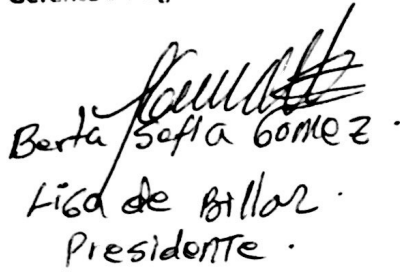 Berta Sofia Gomez.
Liga de Billar.
Presidente.